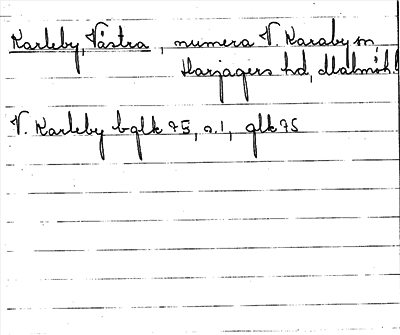 Karleby, Västra, numera V. Karaby sn,
Harjagers hd, Malmöh.l
V. Karleby bglk 75, s. 1, glk 75